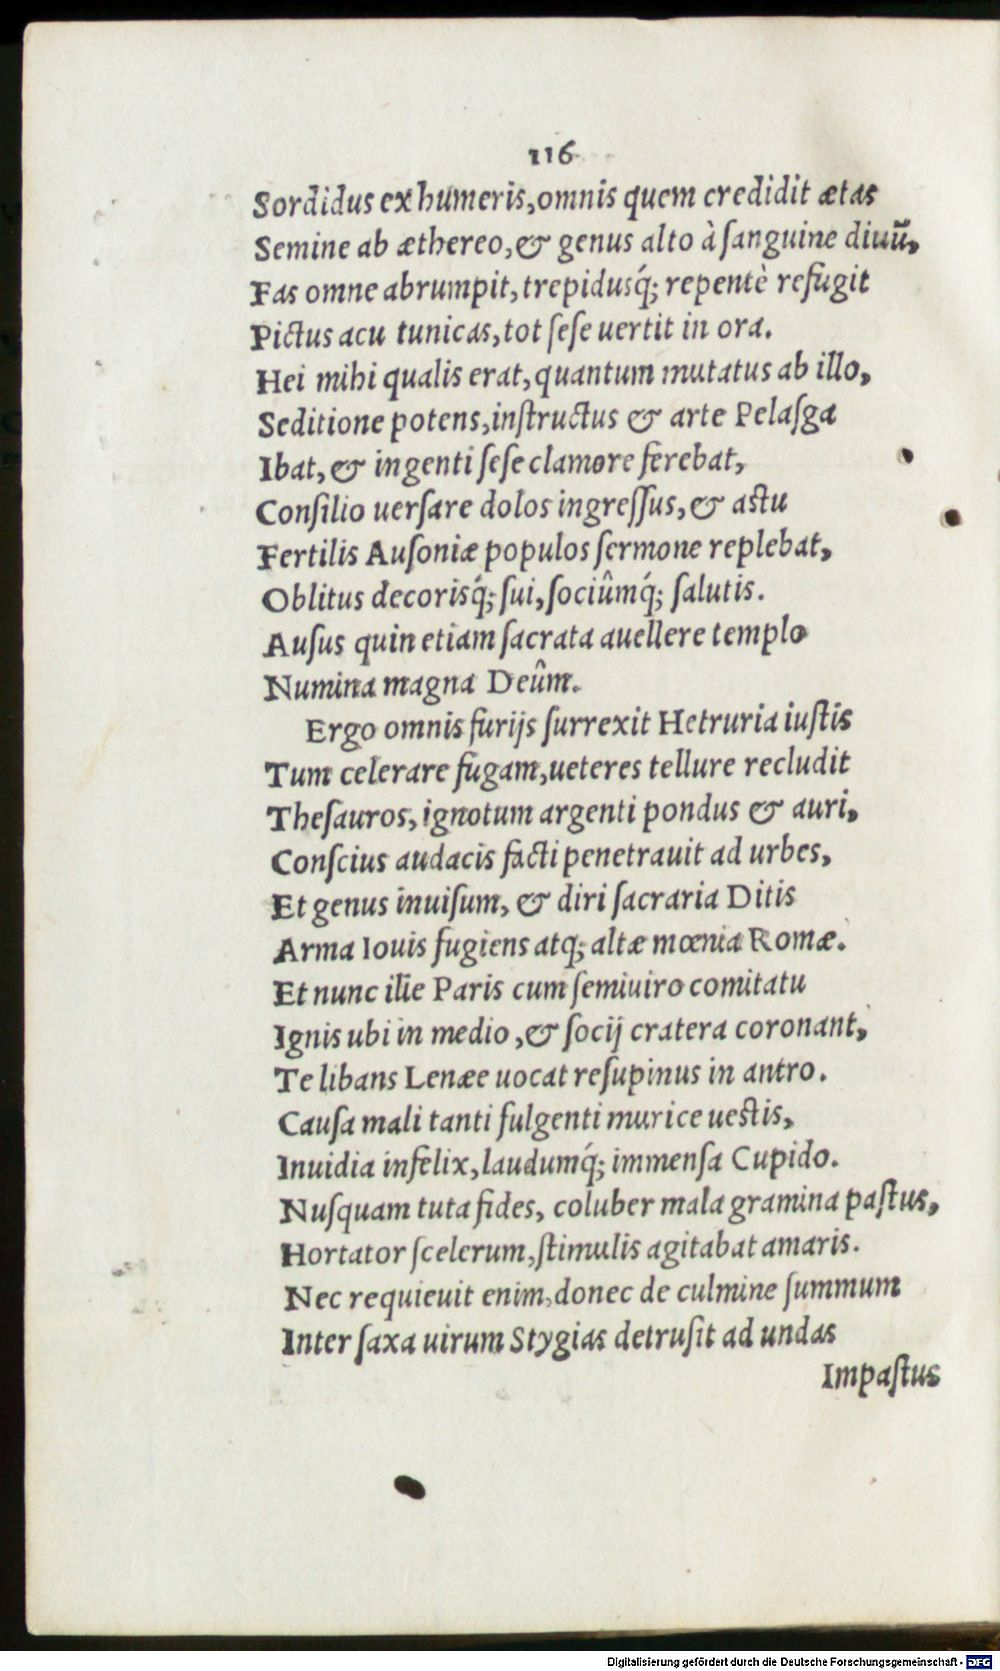 116
Sordidus ex humeris, omnis quem credidit ætas
Semine ab æthereo, & genus alto à ſanguine diuũ,
Fas omne abrumpit, trepidusq́; repentè refugit
Pictus acu tunicas, tot ſeſe uertit in ora.
Hei mihi qualis erat, quantum mutatus ab illo,
Seditione potens, inſtructus & arte Pelaſga
Ibat, & ingenti ſeſe clamore ferebat,
Conſilio uerſare dolos ingreſſus, & aſtu
Fertilis Auſoniæ populos ſermone replebat,
Oblitus decorisq́; ſui, ſociûmq́; ſalutis.
Auſus quin etiam ſacrata auellere templo
Numina magna Deûm.
Ergo omnis furijs ſurrexit Hetruria iuſtis
Tum celerare fugam, ueteres tellure recludit
Theſauros, ignotum argenti pondus & auri,
Conſcius audacis facti penetrauit ad urbes,
Et genus inuiſum, & diri ſacraria Ditis
Arma Iouis fugiens atq; altæ mœnia Romæ.
Et nunc ille Paris cum ſemiuiro comitatu
Ignis ubi in medio, & ſocij cratera coronant,
Te libans Lenæe uocat reſupinus in antro.
Cauſa mali tanti fulgenti murice ueſtis,
Inuidia infelix, laudumq́; immenſa Cupido.
Nuſquam tuta fides, coluber mala gramina paſtus,
Hortator ſcelerum, ſtimulis agitabat amaris.
Nec requieuit enim, donec de culmine ſummum
Inter ſaxa uirum Stygias detruſit ad undas
Impaſtus
Digitalisierung gefördert durch die Deutsche Forschungsgemeinschaft - DFG